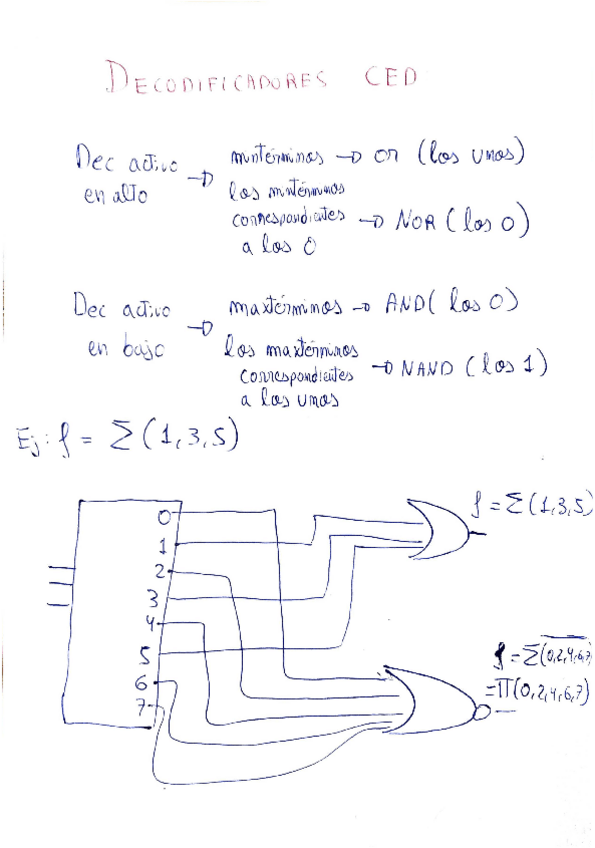 DECODIFICADORES CED
Dec activo → mintérminos → or (los unos)
en alto
los mintérminos
correspondientes → NOR (los 0)
a los 0
Dec activo → maxtérminos → AND (los 0)
en bajo
los maxtérminos
correspondientes → NAND (los 1)
a los unos
Ej: f = Σ(1,3,5)
0
1
2
3
4
5
6
7
f = Σ(1,3,5)
f = Σ(0,2,4,6,7)
= Π(0,2,4,6,7)